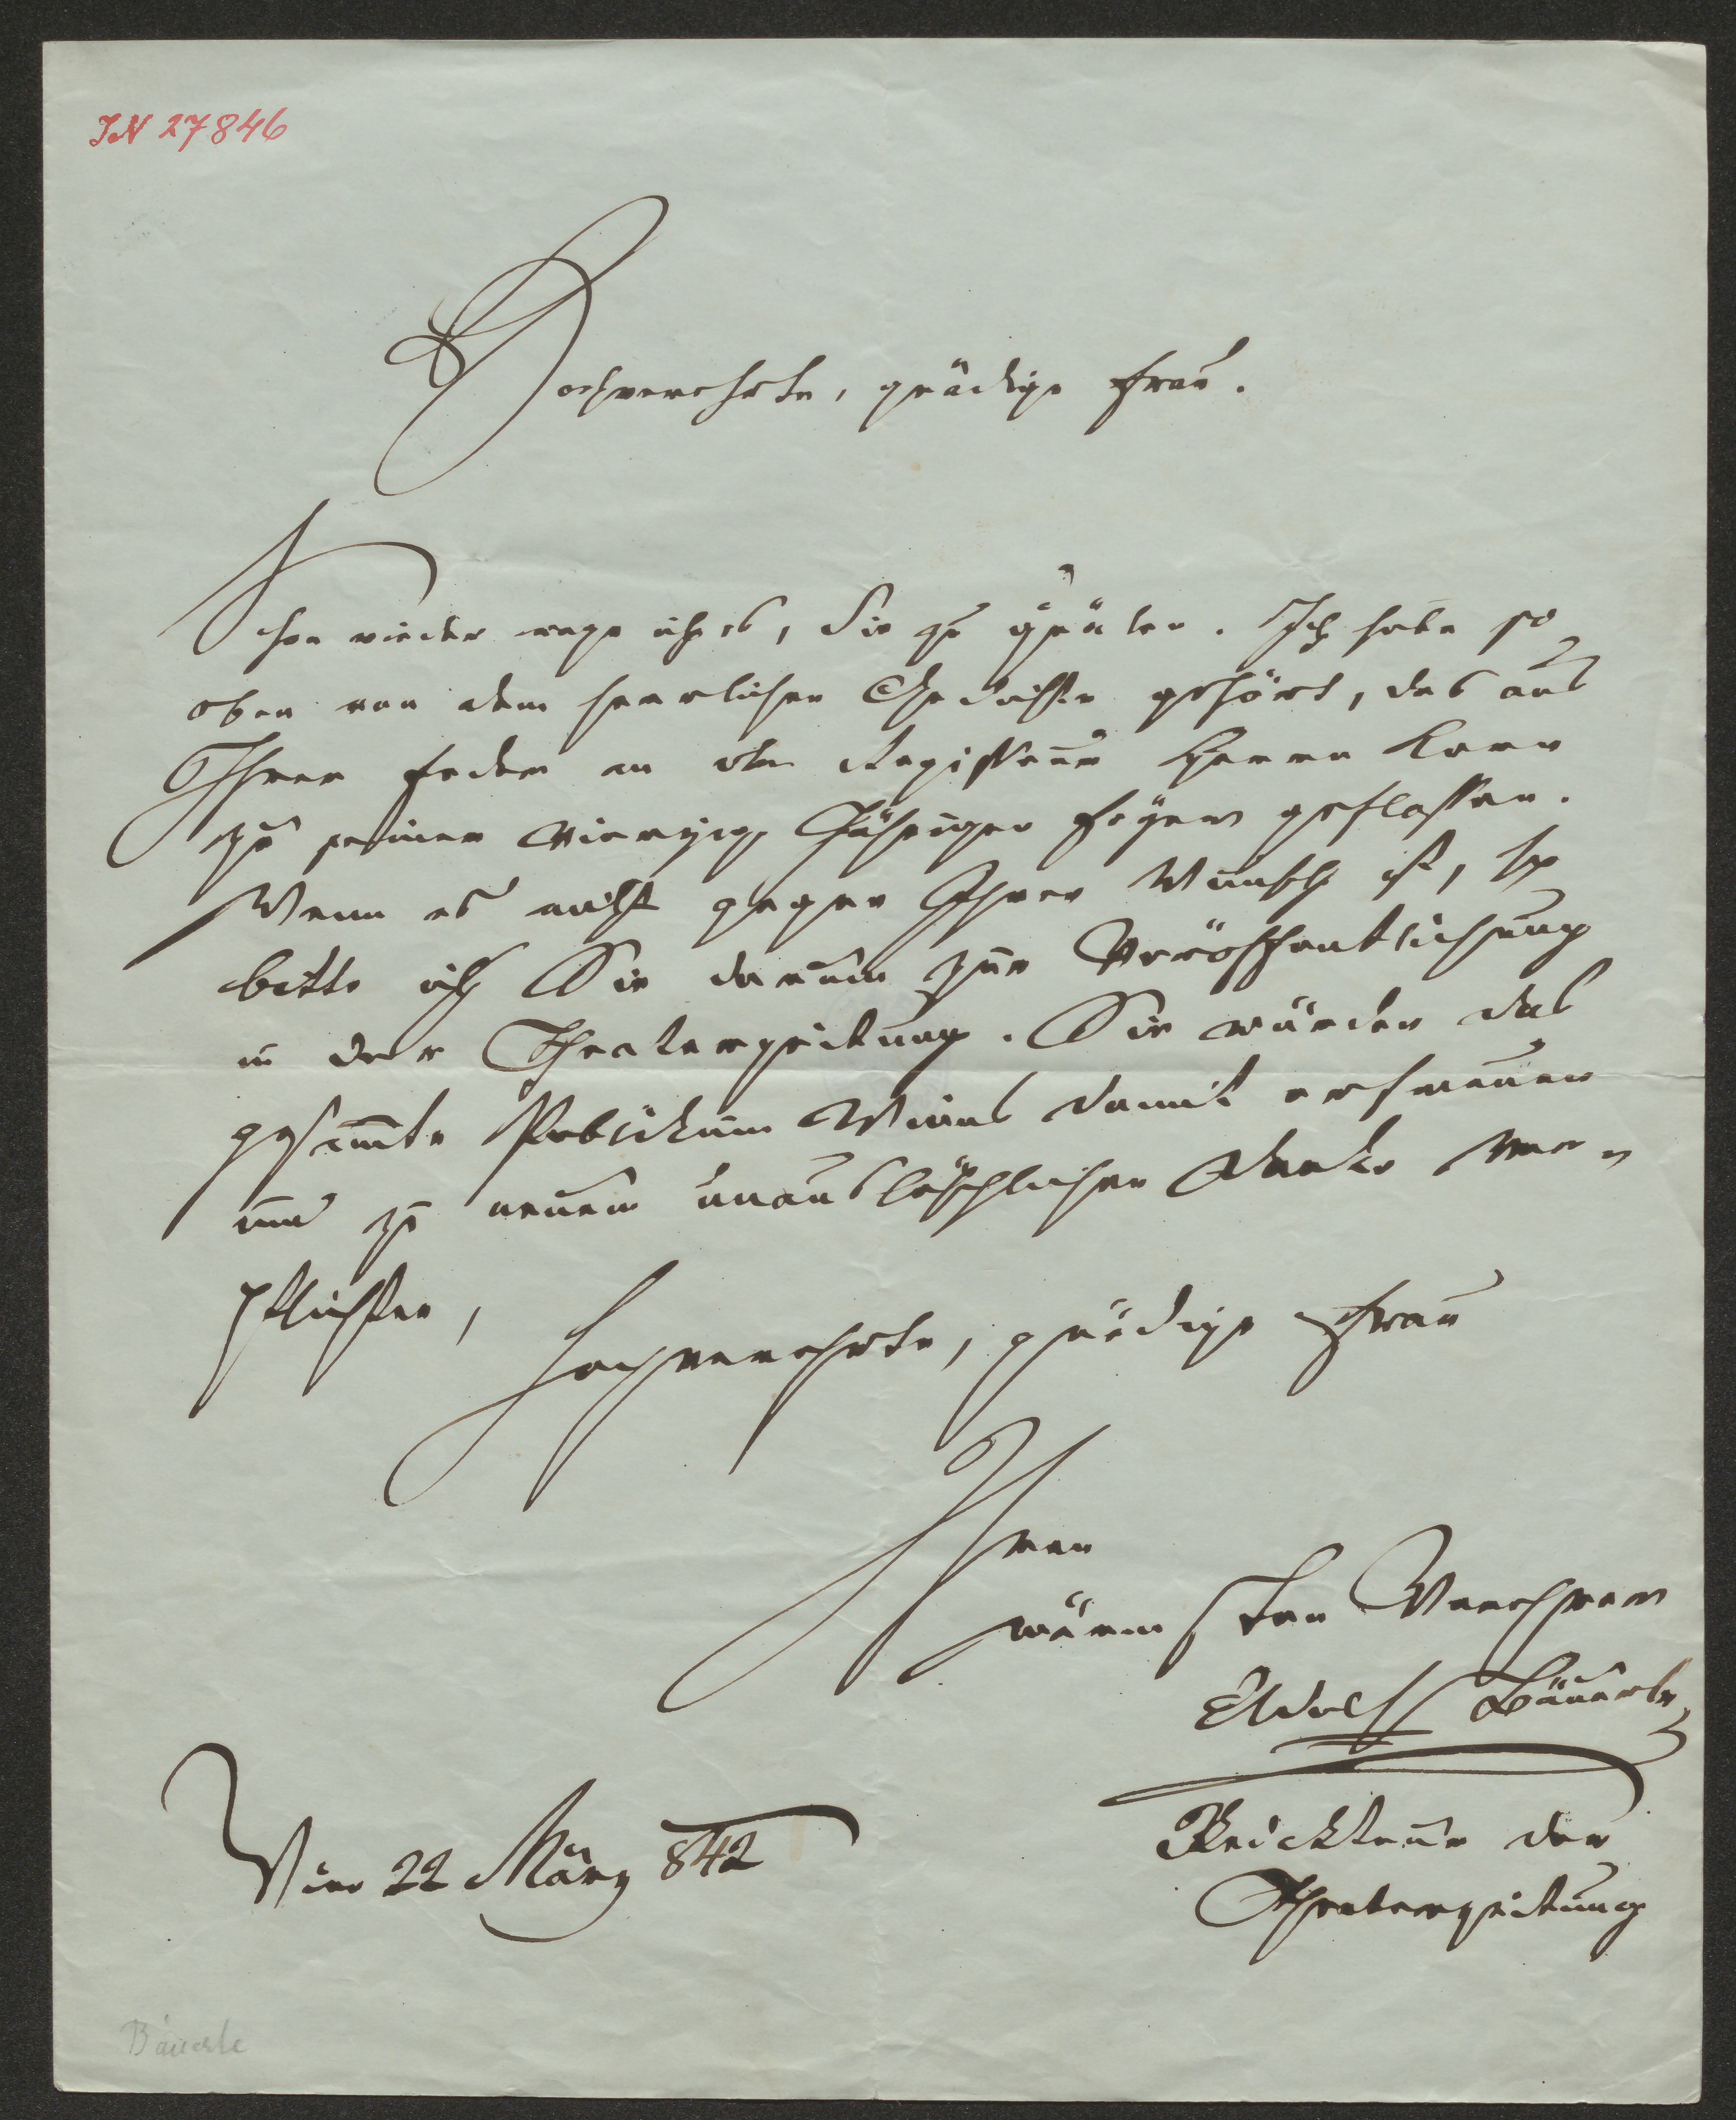 IN 27846
Hochverehrte, gnädige Frau.
Schon wieder wage ich es, Sie zu quälen. Ich habe so
eben von dem herrlichen Gedichte gehört, das aus
Ihrer Feder an den Regisseur Herrn Korn
zu seiner vierzig jährigen Feyer geflossen.
Wenn es nicht gegen Ihren Wunsch ist, so
bitte ich Sie darum zur Veröffentlichung
in der Theaterzeitung. Sie würden das
gesammte Publikum Wiens damit erfreuen
und zu neuem unauslöschlichen Danke ver-
pflichten,
hochverehrte, gnädige Frau
Ihren
wärmsten Verehrer
Adolf Bäuerle
Redakteur der
Wien 22 März 842
Theaterzeitung
Bäuerle